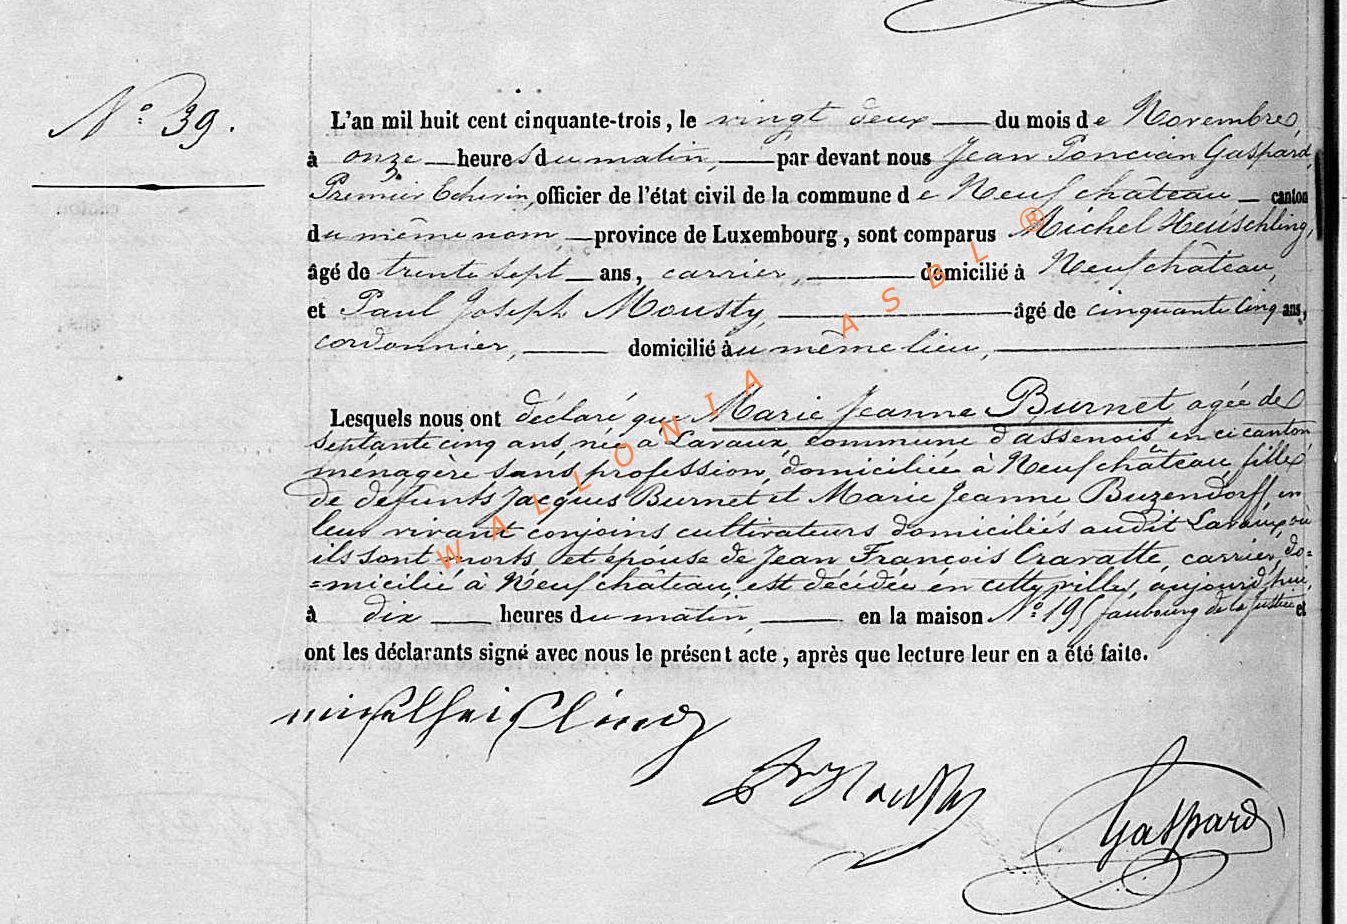 N° 39.
L'an mil huit cent cinquante-trois, le vingt deux du mois de Novembre,
à onze heures du matin, par devant nous Jean Poncian Gaspard,
Premier Echevin, officier de l'état civil de la commune de Neufchâteau canton
du même nom, province de Luxembourg, sont comparus Michel Heuschling,
âgé de trente sept ans, carrier, domicilié à Neufchâteau,
et Paul Joseph Mousty, âgé de cinquante cinq ans,
cordonnier, domicilié au même lieu,
Lesquels nous ont déclaré que Marie Jeanne Burnet agée de
septante cinq ans, née à Lavaux, commune d'assenois, en ce canton
ménagère sans profession, domiciliée à Neufchâteau, fille
de défunts Jacques Burnet et Marie Jeanne Buzendorff en
leur vivant conjoins cultivateurs domiciliés audit Lavaux, où
ils sont morts, et épouse de Jean François Cravatte, carrier, do=
=micilié à Neufchâteau, est décédée en cette ville, aujourd'hui,
à dix heures du matin, en la maison N° 195 faubourg de la Justice et
ont les déclarants signé avec nous le présent acte, après que lecture leur en a été faite.
Gaspard
WALLONIA ASBL ®